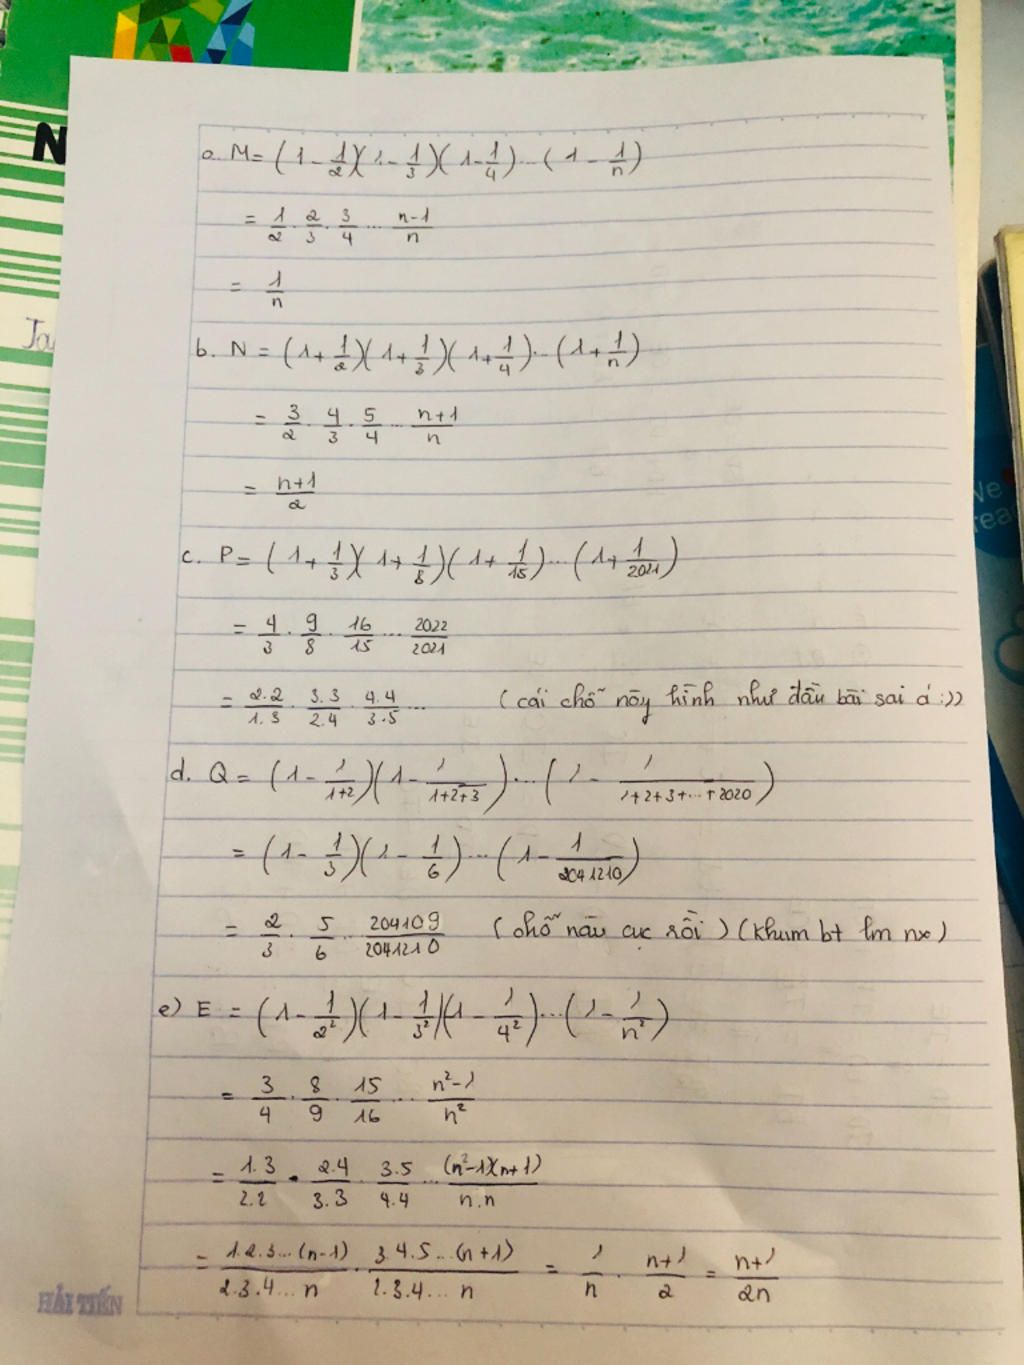 N
Ja
a. M = (1 - 1/2)(1 - 1/3)(1 - 1/4)...(1 - 1/n)
= 1/2 . 2/3 . 3/4 ... n-1/n
= 1/n
b. N = (1 + 1/2)(1 + 1/3)(1 + 1/4)...(1 + 1/n)
= 3/2 . 4/3 . 5/4 ... n+1/n
= n+1/2
c. P = (1 + 1/3)(1 + 1/8)(1 + 1/15)...(1 + 1/2021)
= 4/3 . 9/8 . 16/15 ... 2022/2021
= 2.2/1.3 . 3.3/2.4 . 4.4/3.5 ... (cái chỗ này hình như đầu bài sai á :))
d. Q = (1 - 1/1+2)(1 - 1/1+2+3)...(1 - 1/1+2+3+...+2020)
= (1 - 1/3)(1 - 1/6)...(1 - 1/2041210)
= 2/3 . 5/6 ... 204109/2041210 (chỗ nàu cục rồi) (khum bt lm nx)
e) E = (1 - 1/2²)(1 - 1/3²)(1 - 1/4²)...(1 - 1/n²)
= 3/4 . 8/9 . 15/16 ... n²-1/n²
= 1.3/2.2 . 2.4/3.3 . 3.5/4.4 ... (n²-1)(n+1)/n.n
= 1.2.3...(n-1)/2.3.4...n . 3.4.5...(n+1)/2.3.4...n = 1/n . n+1/2 = n+1/2n
HẢI TIẾN